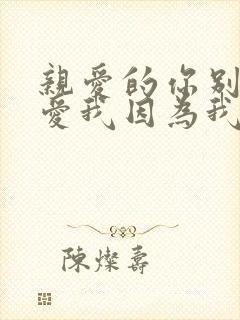 親愛的你别
愛我因為我
陳燦壽